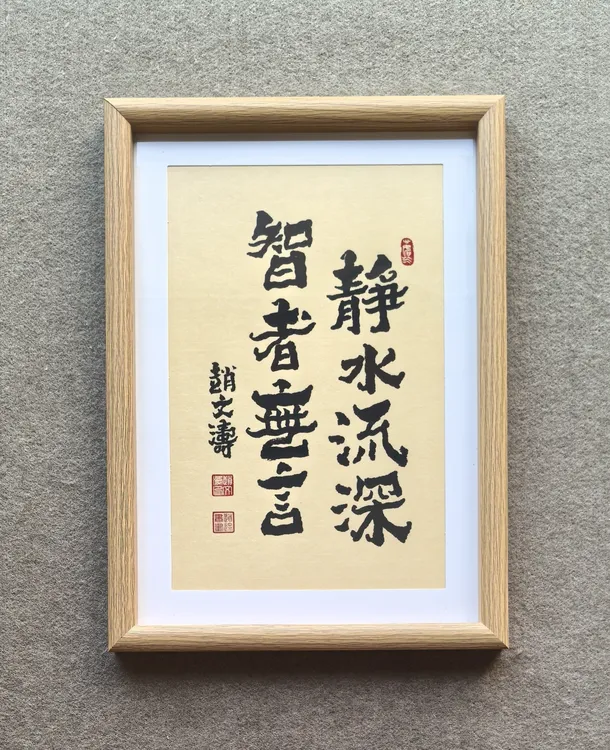 靜水流深
智者無言
趙文濤